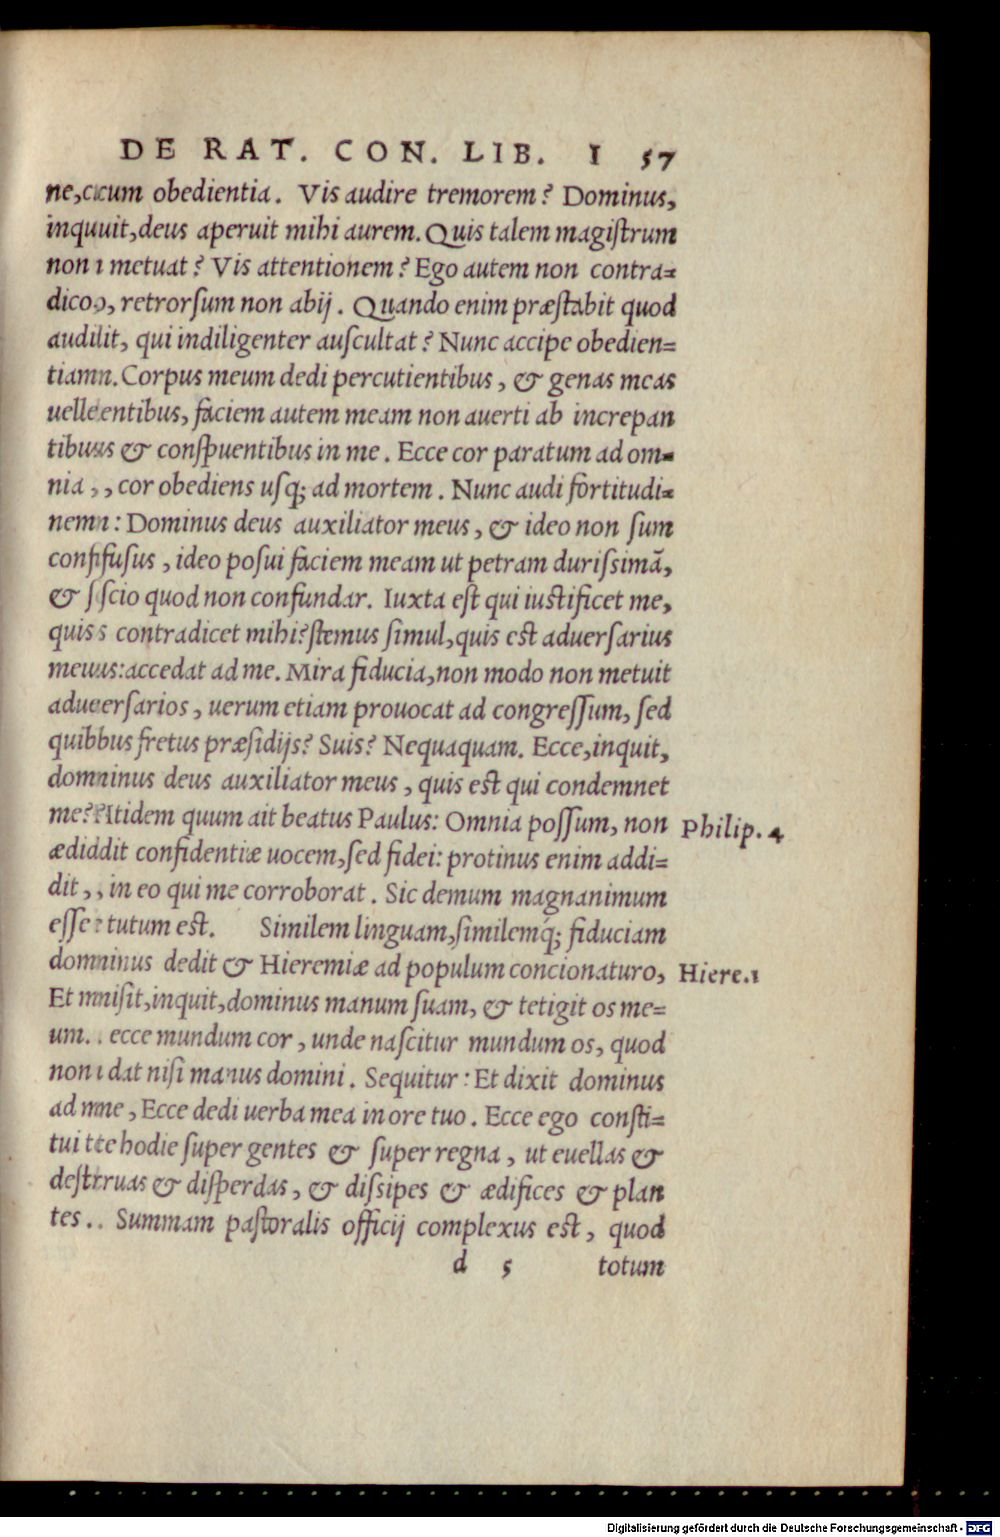 DE RAT. CON. LIB. I 57
ne, cum obedientia. Vis audire tremorem? Dominus,
inquit, deus aperuit mihi aurem. Quis talem magiſtrum
non metuat? Vis attentionem? Ego autem non contra=
dico, retrorſum non abij. Quando enim præſtabit quod
audit, qui indiligenter auſcultat? Nunc accipe obedien=
tiam. Corpus meum dedi percutientibus, & genas meas
uellentibus, faciem autem meam non auerti ab increpan
tibus & conſpuentibus in me. Ecce cor paratum ad om=
nia, cor obediens uſq; ad mortem. Nunc audi fortitudi=
nem: Dominus deus auxiliator meus, & ideo non ſum
confuſus, ideo poſui faciem meam ut petram duriſsimã,
& ſcio quod non confundar. Iuxta eſt qui iuſtificet me,
quis contradicet mihi? ſtemus ſimul, quis eſt aduerſarius
meus: accedat ad me. Mira fiducia, non modo non metuit
aduerſarios, uerum etiam prouocat ad congreſſum, ſed
quibus fretus præſidijs? Suis? Nequaquam. Ecce, inquit,
dominus deus auxiliator meus, quis eſt qui condemnet
me? Itidem quum ait beatus Paulus: Omnia poſſum, non
ædidit confidentiæ uocem, ſed fidei: protinus enim addi=
dit, in eo qui me corroborat. Sic demum magnanimum
eſſe tutum eſt. Similem linguam, ſimilemq́; fiduciam
dominus dedit & Hieremiæ ad populum concionaturo,
Et miſit, inquit, dominus manum ſuam, & tetigit os me=
um. ecce mundum cor, unde naſcitur mundum os, quod
non dat niſi manus domini. Sequitur: Et dixit dominus
ad me, Ecce dedi uerba mea in ore tuo. Ecce ego conſti=
tui te hodie ſuper gentes & ſuper regna, ut euellas &
deſtruas & diſperdas, & diſsipes & ædifices & plan
tes. Summam paſtoralis officij complexus eſt, quod
d 5 totum
Philip. 4
Hiere.1
Digitalisierung gefördert durch die Deutsche Forschungsgemeinschaft - DFG